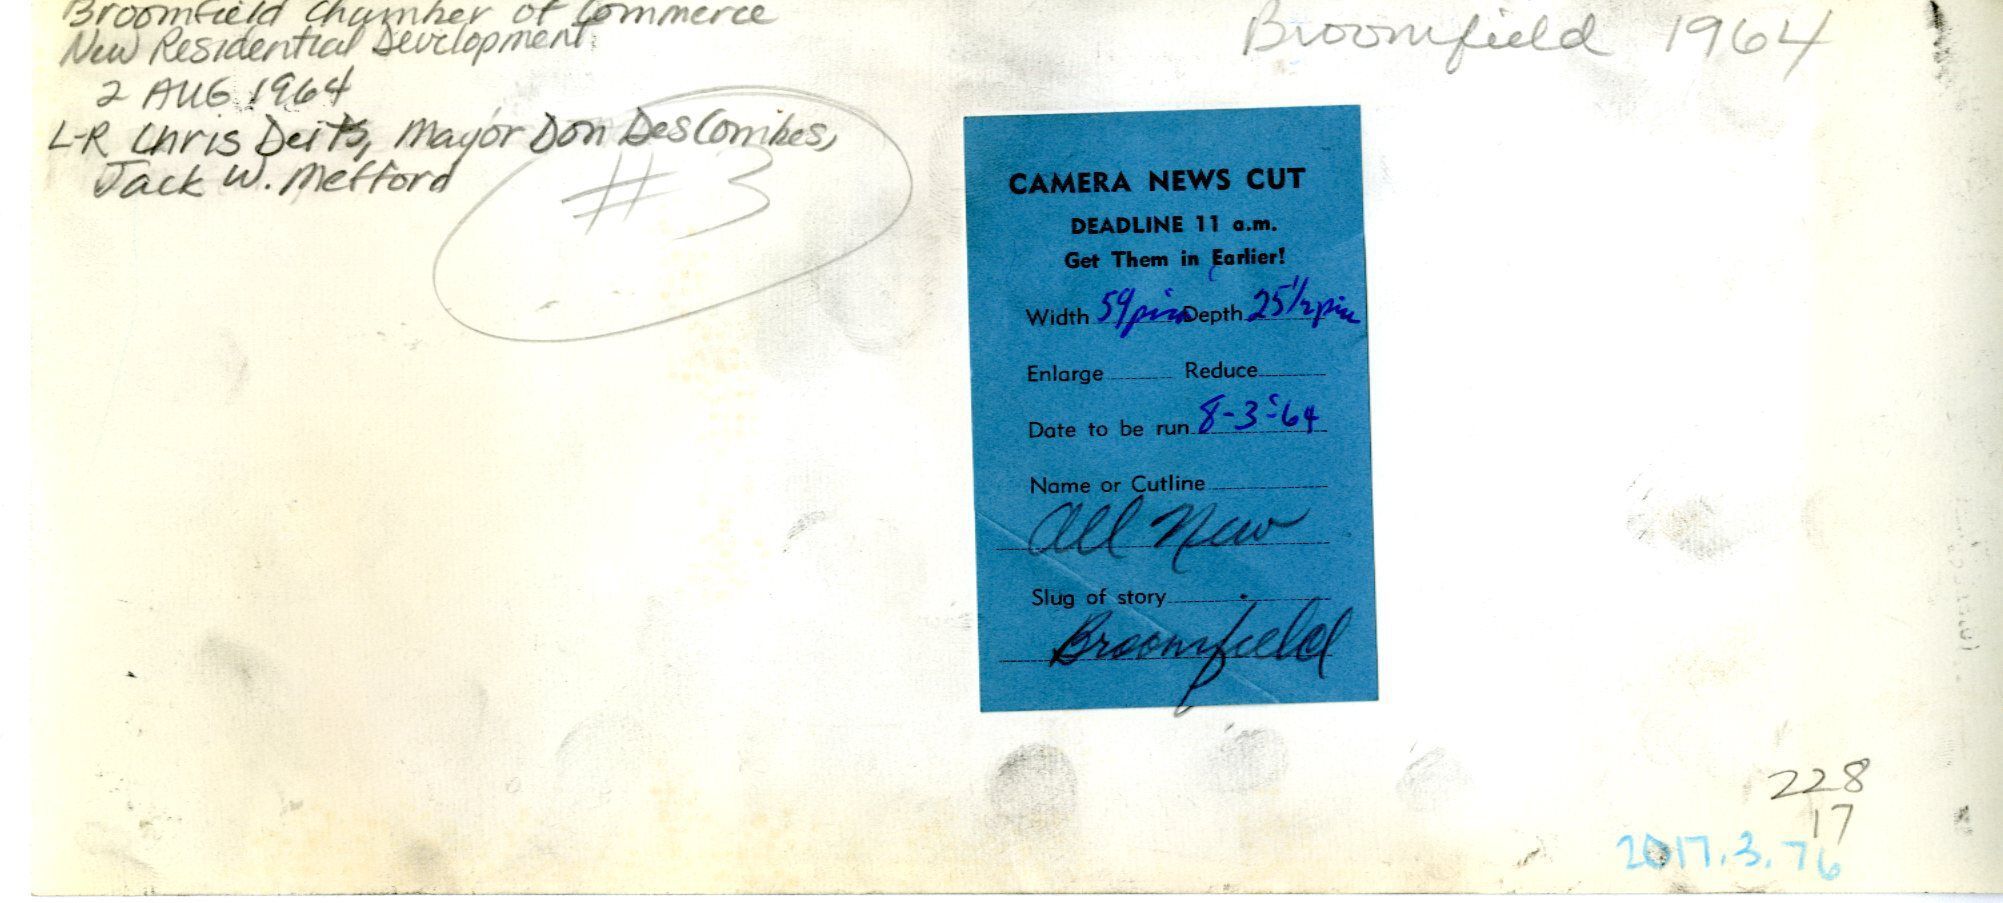 Broomfield Chamber of Commerce
New Residential Development
2 AUG 1964
L-R Chris Deits, Mayor Don DesCombes,
Jack W. Mefford
#3
Broomfield 1964
CAMERA NEWS CUT
DEADLINE 11 a.m.
Get Them in Earlier!
Width 59 pica Depth 25 1/2 pica
Enlarge Reduce
Date to be run 8-3-'64
Name or Cutline
All New
Slug of story
Broomfield
228
17
2017.3.76